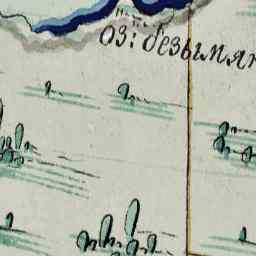 Оз: безымян